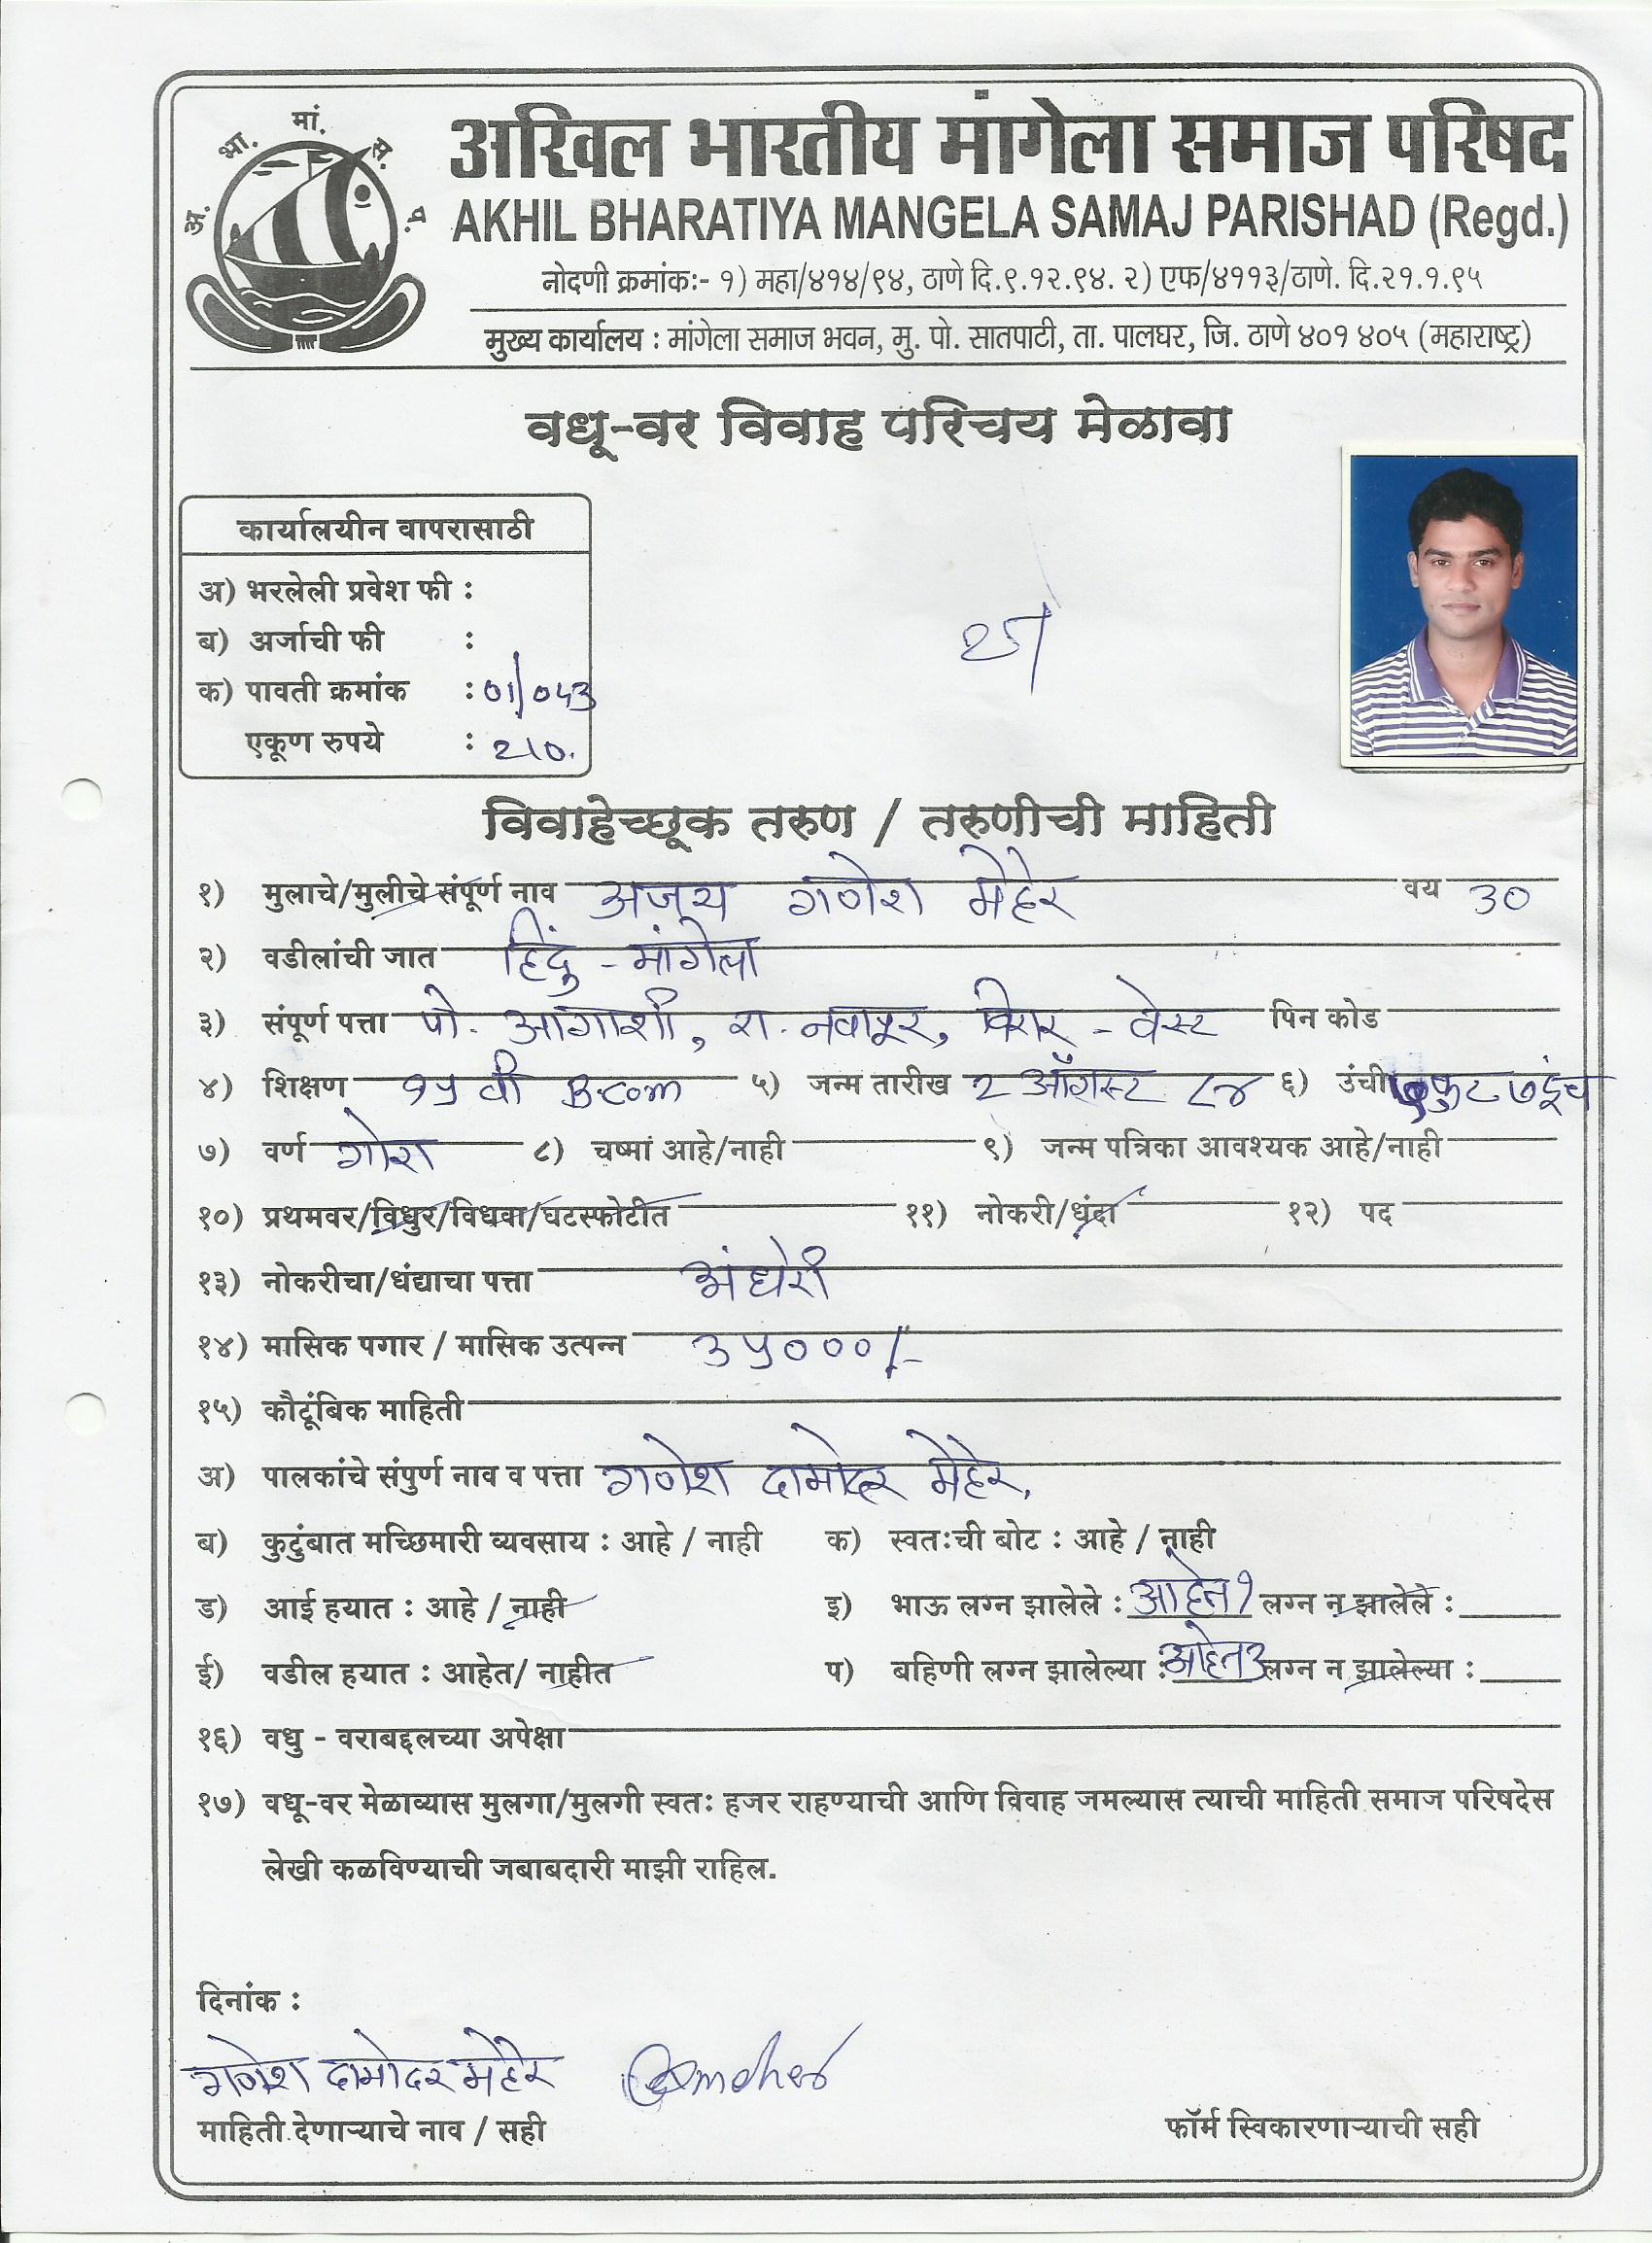 अ. भा. मां. स. प.
अखिल भारतीय मांगेला समाज परिषद
AKHIL BHARATIYA MANGELA SAMAJ PARISHAD (Regd.)
नोदणी क्रमांकः- १) महा/४१४/९४, ठाणे दि.९.१२.९४. २) एफ/४११३/ठाणे. दि.२१.१.९५
मुख्य कार्यालय : मांगेला समाज भवन, मु. पो. सातपाटी, ता. पालघर, जि. ठाणे ४०१ ४०५ (महाराष्ट्र)
वधू-वर विवाह परिचय मेळावा
कार्यालयीन वापरासाठी
अ) भरलेली प्रवेश फी :
ब) अर्जाची फी :
क) पावती क्रमांक : 01/043
एकूण रुपये : 210.
विवाहेच्छूक तरुण / तरुणीची माहिती
१) मुलाचे/मुलीचे संपूर्ण नाव अजय गणेश मेहेर वय 30
२) वडीलांची जात हिंदु - मांगेला
३) संपूर्ण पत्ता पो. आगाशी, रा. नवापूर, विरार - वेस्ट पिन कोड
४) शिक्षण १५ वी B.com ५) जन्म तारीख २ ऑगस्ट ८४ ६) उंची ५ फुट ७ इंच
७) वर्ण गोरा ८) चष्मां आहे/नाही ९) जन्म पत्रिका आवश्यक आहे/नाही
१०) प्रथमवर/विधुर/विधवा/घटस्फोटीत ११) नोकरी/धंदा १२) पद
१३) नोकरीचा/धंद्याचा पत्ता अंधेरी
१४) मासिक पगार / मासिक उत्पन्न ३५०००/-
१५) कौटूंबिक माहिती
अ) पालकांचे संपुर्ण नाव व पत्ता गणेश दामोदर मेहेर.
ब) कुटुंबात मच्छिमारी व्यवसाय : आहे / नाही क) स्वतःची बोट : आहे / नाही
ड) आई हयात : आहे / नाही इ) भाऊ लग्न झालेले : आहेत १ लग्न न झालेले :
ई) वडील हयात : आहेत/ नाहीत प) बहिणी लग्न झालेल्या : आहेत ३ लग्न न झालेल्या :
१६) वधु - वराबद्दलच्या अपेक्षा
१७) वधू-वर मेळाव्यास मुलगा/मुलगी स्वतः हजर राहण्याची आणि विवाह जमल्यास त्याची माहिती समाज परिषदेस
लेखी कळविण्याची जबाबदारी माझी राहिल.
दिनांक :
गणेश दामोदर मेहेर
माहिती देणाऱ्याचे नाव / सही फॉर्म स्विकारणाऱ्याची सही